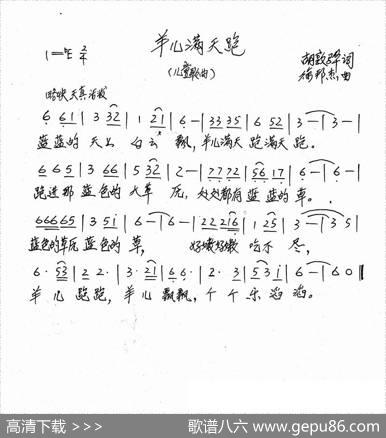 羊儿满天跑
(儿童歌曲)
1=♭E 2/4
词
曲
6 6 1 | 3 3 2 | 1 2 1 | 6 - | 3 3 3 5 | 6 5 2 | 3 - | 3 - |
蓝蓝的 天上 白云 飘, 羊儿满天 跑满天 跑.
6 6 5 | 3 6 6 | 5 3 2 | 2 - | 7 7 7 2 | 5 6 1 7 | 6 - | 6 - |
跑进那 蓝色的 大草 原, 处处都有 蓝蓝的 草.
6 6 6 6 5 | 3 5 i | 6 - | 6 - | 2 2 2 1 6 | 1 2 5 | 3 - | 3 5 |
蓝色的草原 蓝色的 草, 好嫩好嫩 吃不 尽,
6 · 5 3 | 2 2 · | 3 · 2 1 | 6 6 · | 2 · 3 | 5 3 i | 6 - | 6 0 ‖
羊 儿 跑跑, 羊 儿 飘飘, 个 个 乐 滔 滔。
高清下载 >>>
歌谱八六 www.gepu86.com